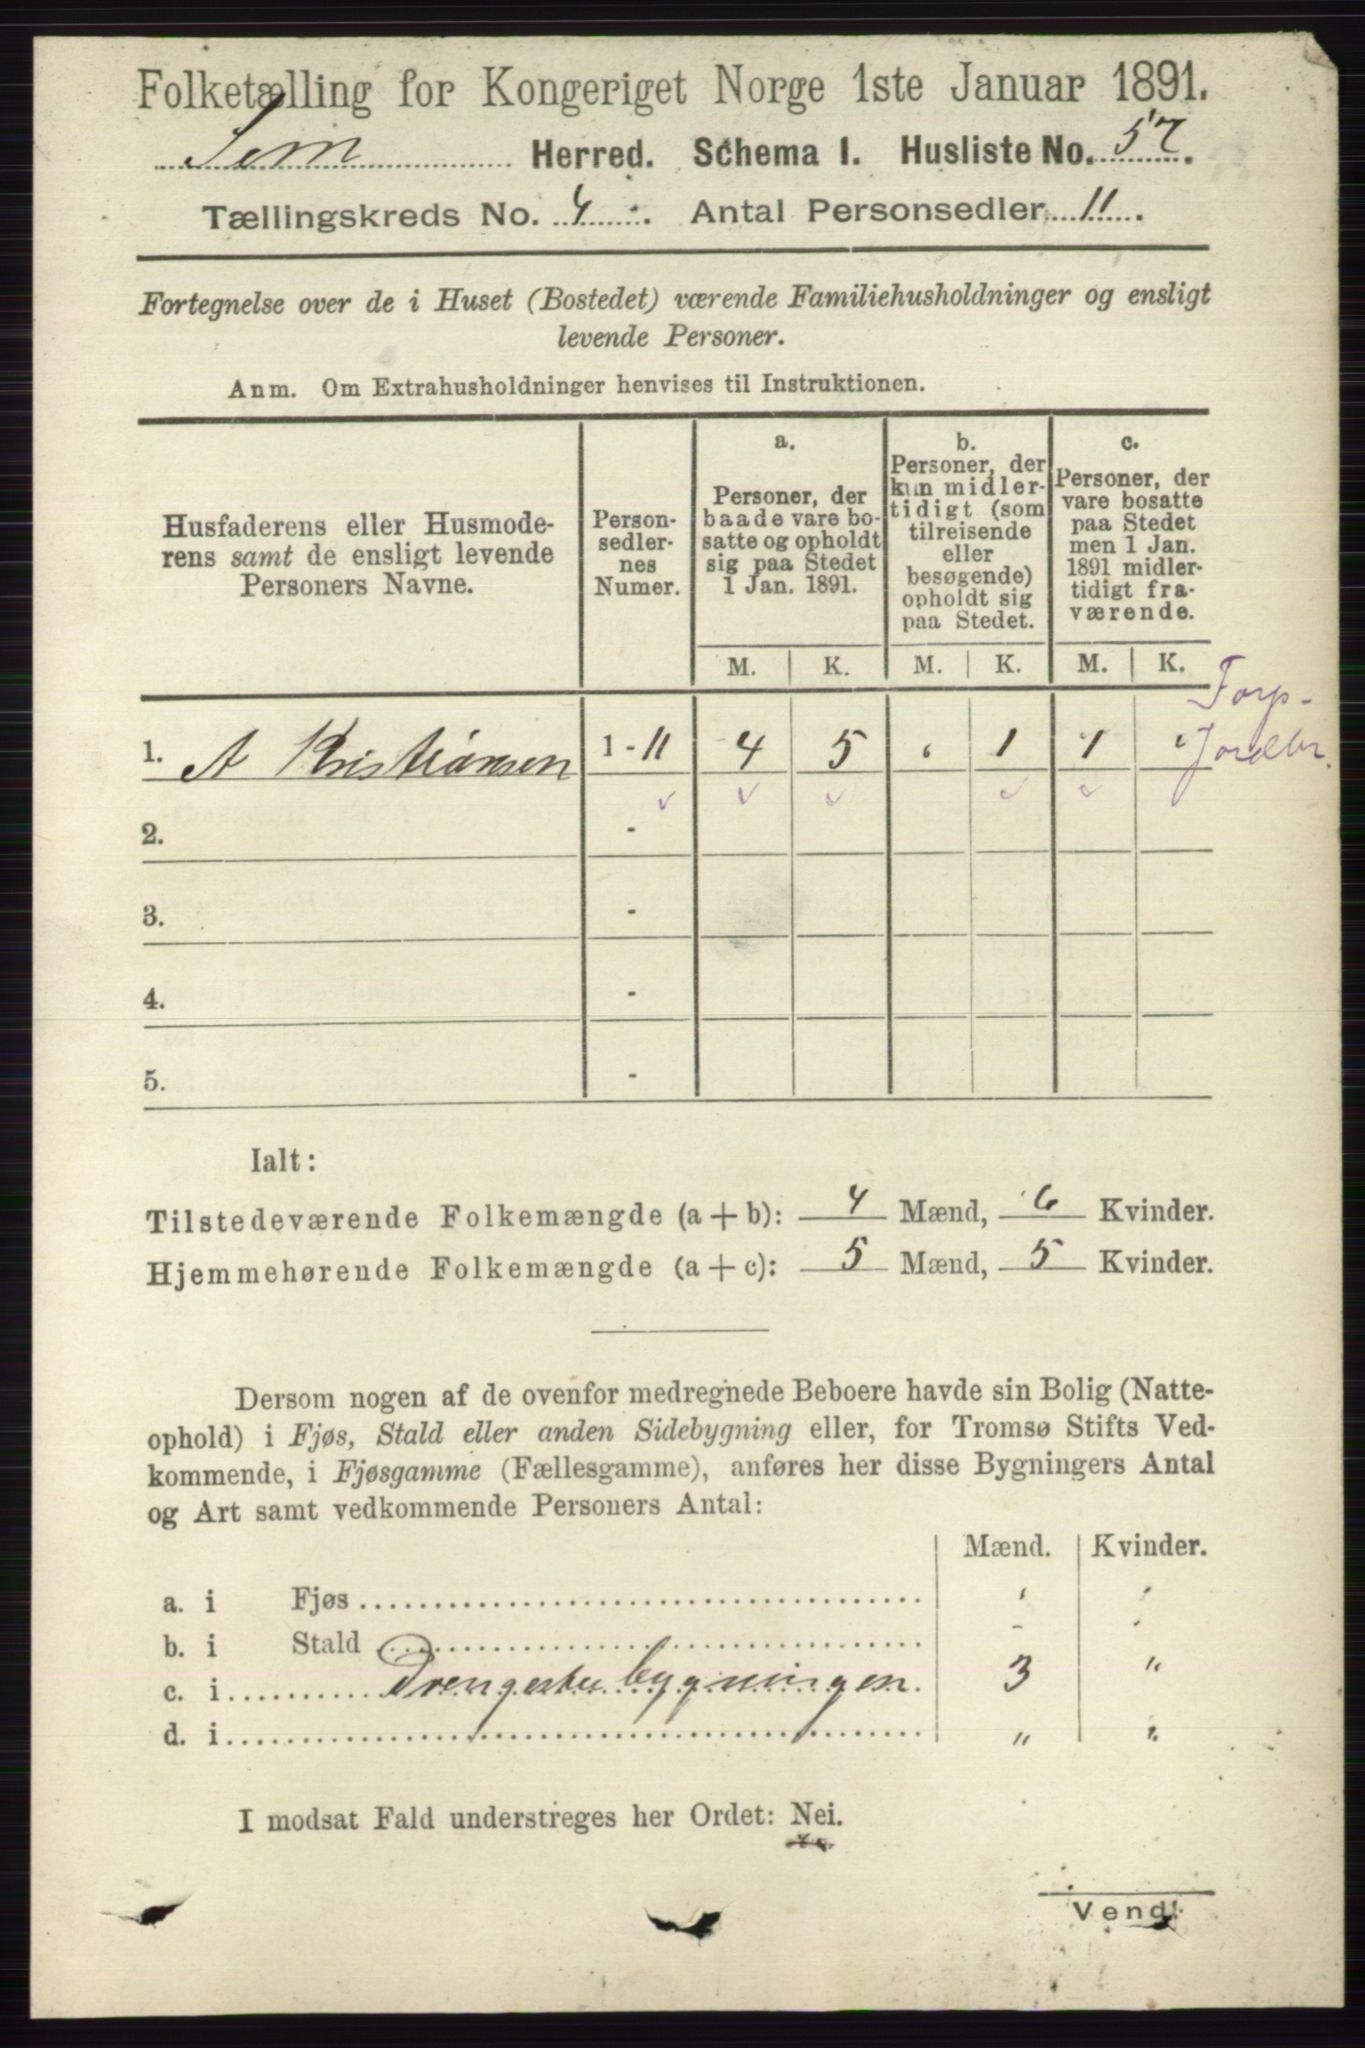 Folketælling for Kongeriget Norge 1ste Januar 1891.
Sem Herred. Schema I. Husliste No. 57.
Tællingskreds No. 4. Antal Personsedler 11.
Fortegnelse over de i Huset (Bostedet) værende Familiehusholdninger og ensligt
levende Personer.
Anm. Om Extrahusholdninger henvises til Instruktionen.
Husfaderens eller Husmode-
rens samt de ensligt levende
Personers Navne.
Person-
sedler-
nes
Numer.
a.
Personer, der
baade vare bo-
satte og opholdt
sig paa Stedet
1 Jan. 1891.
b.
Personer, der
kun midler-
tidigt (som
tilreisende
eller
besøgende)
opholdt sig
paa Stedet.
c.
Personer, der
vare bosatte
paa Stedet
men 1 Jan.
1891 midler-
tidigt fra-
værende.
M. K. M. K. M. K.
Torp-
Jordbr.
1. A Kristiansen 1-11 4 5 " 1 1 "
2. -
3. -
4. -
5. -
Ialt:
Tilstedeværende Folkemængde (a+b): 4 Mænd, 6 Kvinder.
Hjemmehørende Folkemængde (a+c): 5 Mænd, 5 Kvinder.
Dersom nogen af de ovenfor medregnede Beboere havde sin Bolig (Natte-
ophold) i Fjøs, Stald eller anden Sidebygning eller, for Tromsø Stifts Ved-
kommende, i Fjøsgamme (Fællesgamme), anføres her disse Bygningers Antal
og Art samt vedkommende Personers Antal:
Mænd. Kvinder.
a. i Fjøs " "
b. i Stald - "
c. i Drengestubygningen 3 "
d. i " "
I modsat Fald understreges her Ordet: Nei.
Vend!